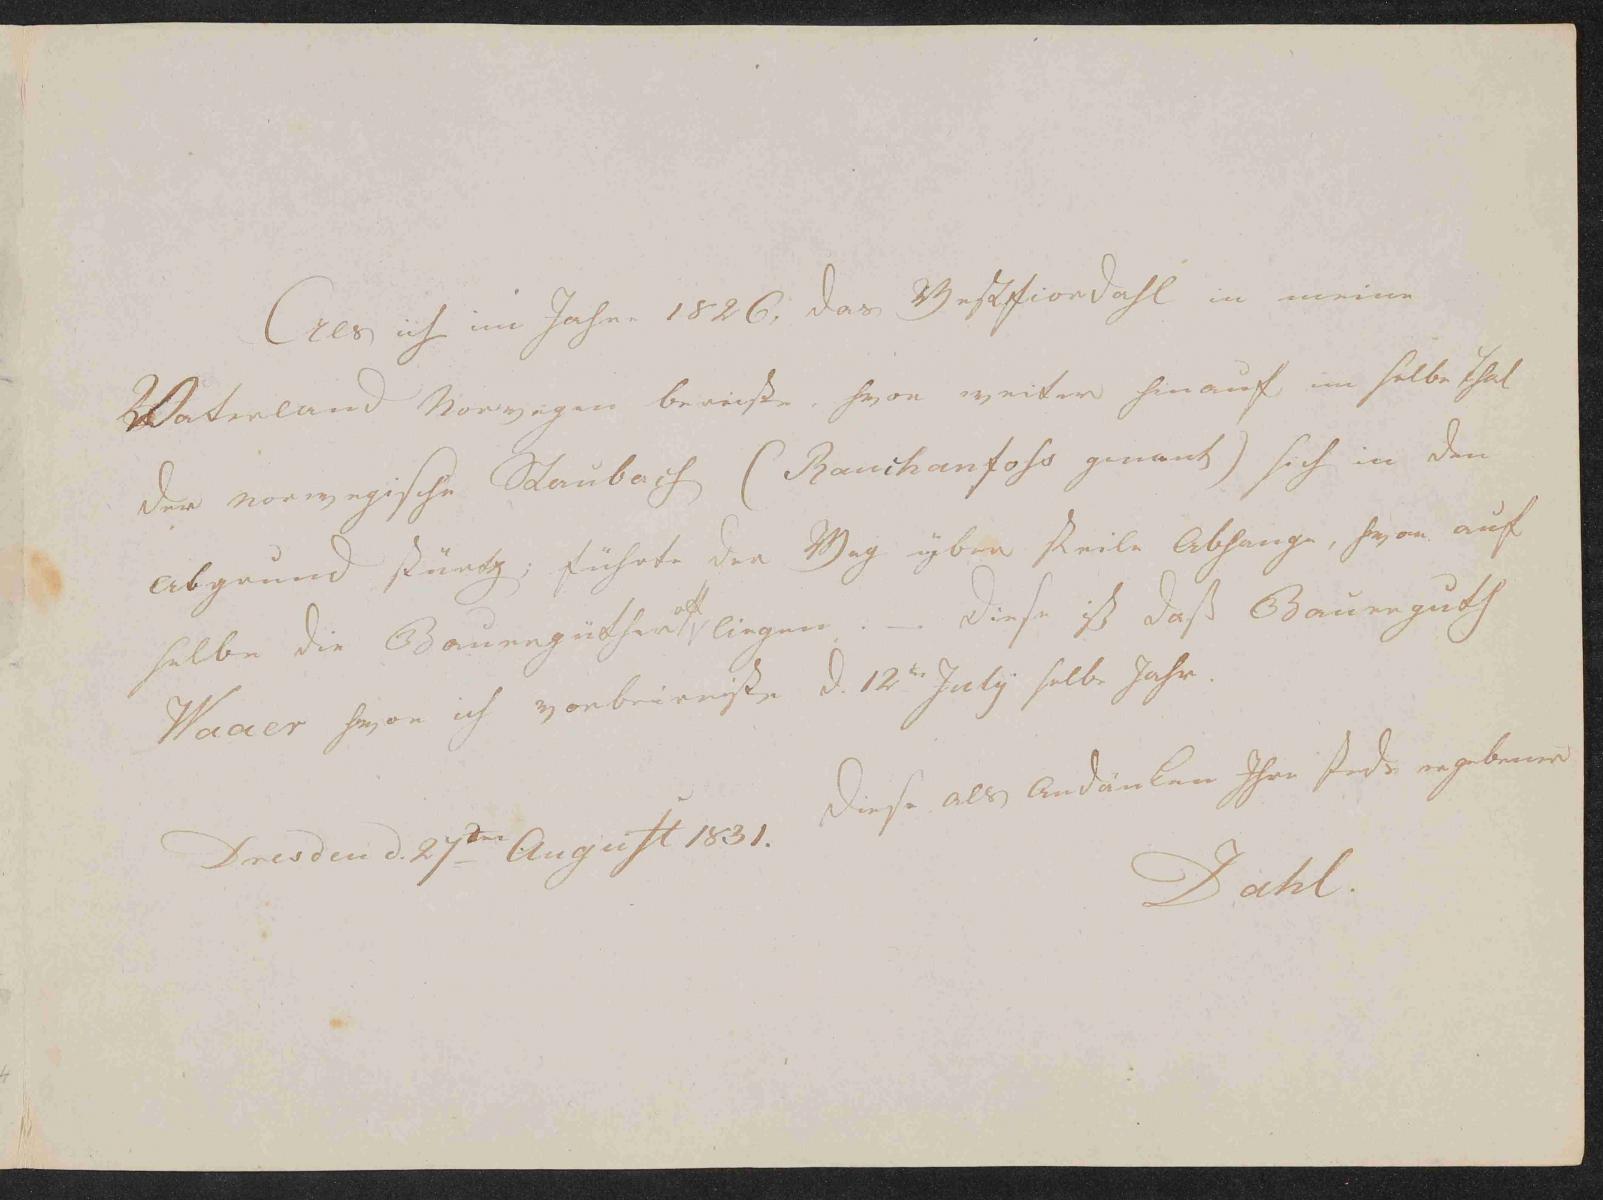 Als ich im Jahre 1826, das Westfiordahl in meine
Vaterland Norwegen bereiste, hvor weiter hinauf im selbe Thal
der norwegische Staubach (Rauchanfoss genant) sich in den
Abgrund stürtz; führte der Weg über steile Abhange, hvor auf
selbe die Bauerngüther oft liegen. — Diese ist daß Bauernguth
Waaer hvor ich vorbeireiste d. 12te July selbe Jahr.
Diese als Andänken Ihre steds ergebener
Dresden d. 27ten August 1831.
Dahl.